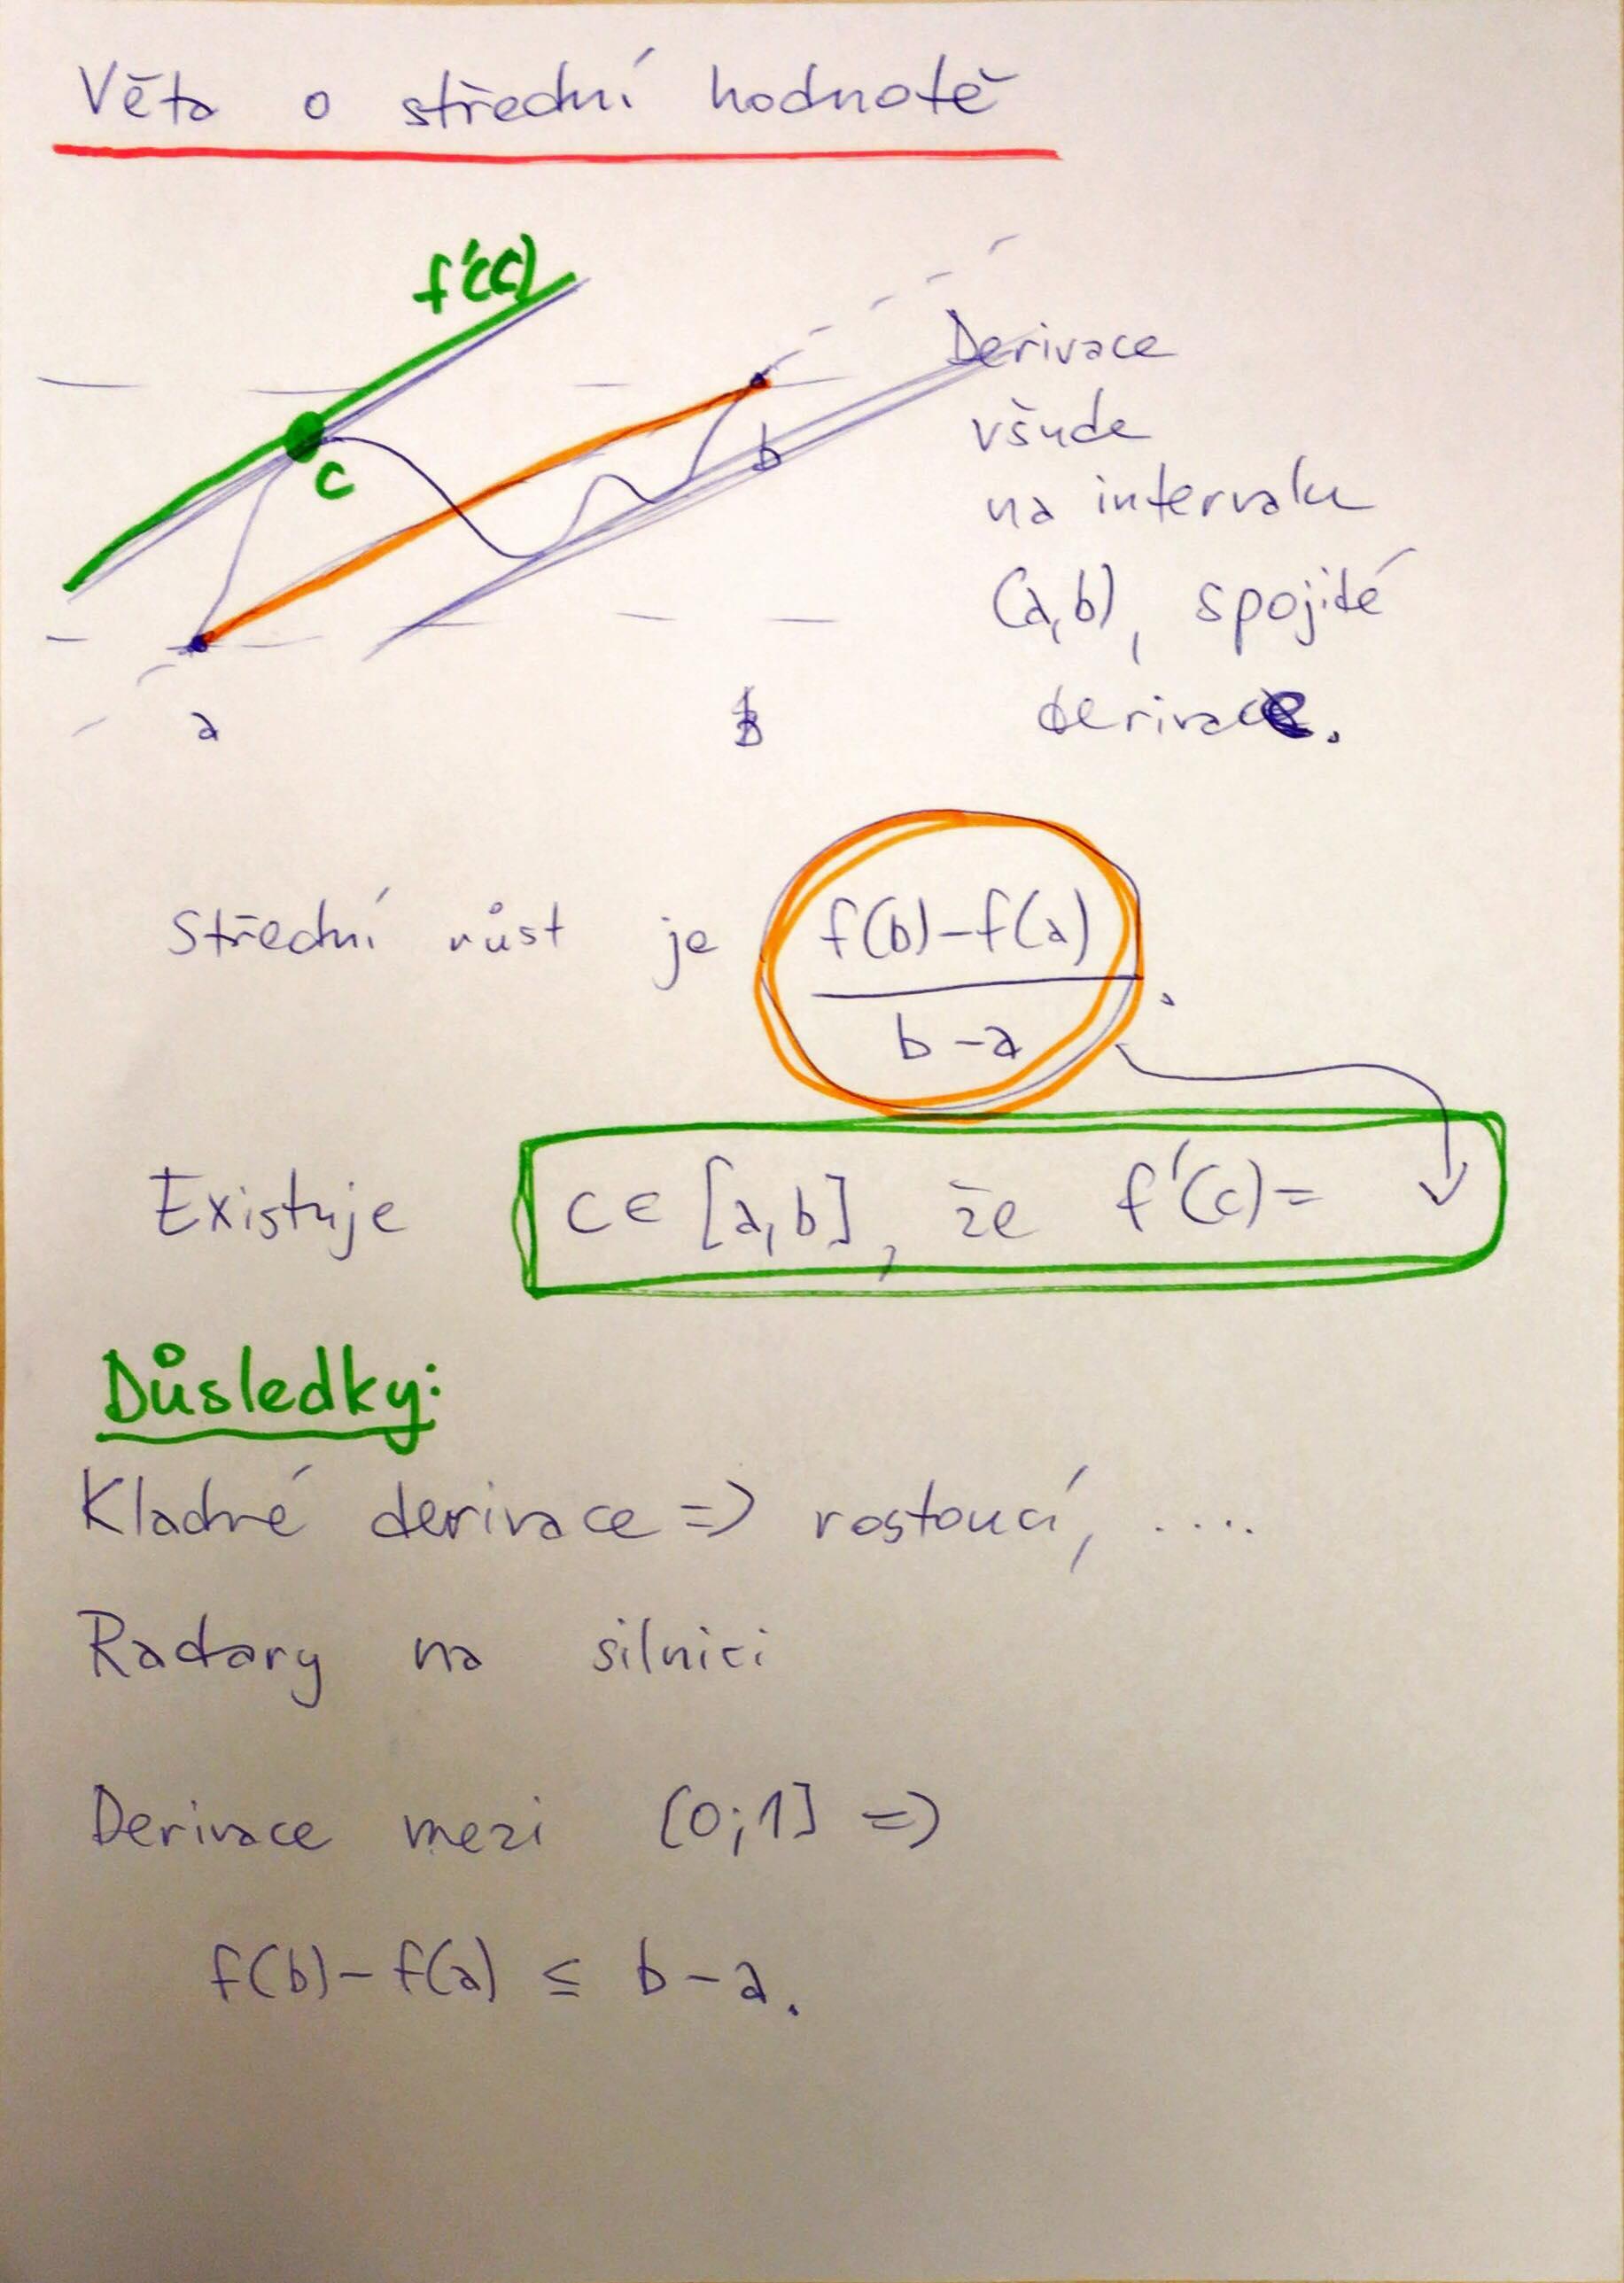 Věta o střední hodnotě
f'(c)
c
b
a
Derivace
všude
na intervalu
(a,b), spojité
derivace.
Střední růst je f(b)-f(a)
b-a
.
Existuje c∈[a,b], že f'(c)=
Důsledky:
Kladné derivace => rostoucí, ....
Radary na silnici
Derivace mezi [0;1] =>
f(b)-f(a) ≤ b-a.